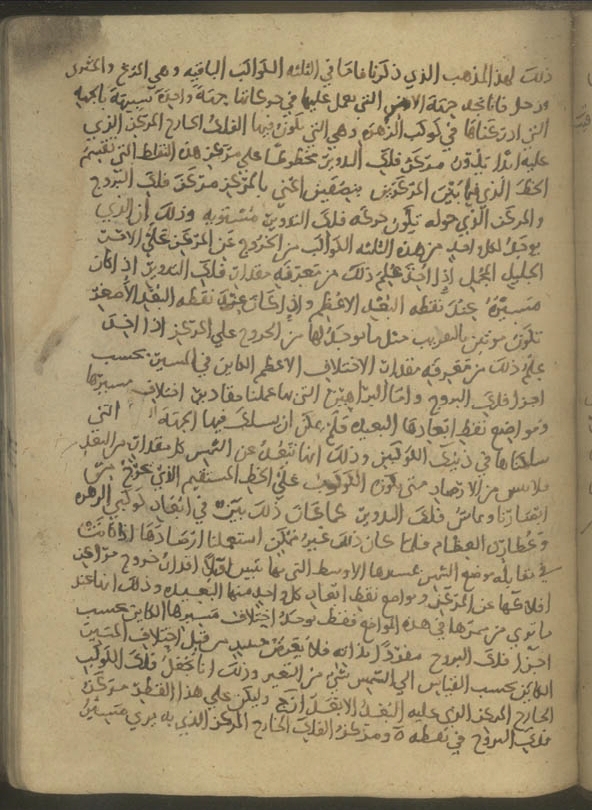 ذلك لهذا المذهب الذي ذكرنا فاما في الثلثه الكواكب الباقيه وهي المريخ والمشترى
وزحل فانا نجد جهة الامر التى نعمل عليها في حركاتها جهة واحدة شبيهة بالجهه
التي ادركناها في كوكب الزهرة وهي التي تكون فيها الفلك الخارج المركز الذي
عليه ابدا يكون مركز فلك التدوير مخطوطا على مركز هذه النقط التي تقسم
الخط الذي فيما بين المركزين بنصفين اعني بالمركزين مركز فلك البروج
والمركز الذي حوله تكون حركه فلك التدوير مستويه وذلك ان الذي
يوجد لكل واحد من هذه الثلثه الكواكب من الخروج عن المركز على الامر
الجليل المجمل اذا اخذ علم ذلك من معرفه مقدار فلك التدوير اذا كان
مسيره عند نقطه البعد الاعظم واذا كان عند نقطه البعد الاصغر
تكون مرتين بالتقريب مثل ما يوجد لها من الخروج على المركز اذا اخذ
علم ذلك من معرفه مقدار الاختلاف الاعظم الكاين في المسير بحسب
اجزا فلك البروج واما البراهين التى بها علمنا مقادير اختلاف مسيرها
ومواضع نقط ابعادها البعيده فلم يمكن ان يسلك فيها الجهه التي
سلكناها في ذينك الكوكبين وذلك انها تبعد عن الشمس كل مقدار من البعد
فلا يبين من الارصاد متى يكون الكوكب على الخط المستقيم الذي يخرج من
ابصارنا ويماس فلك التدوير كما كان ذلك بين في ابعاد كوكبي الزهره
وعطارد العظام فلما كان ذلك غير ممكن استعملنا ارصادها اذا كانت
في مقابله موضع الشمس بمسيرها الاوسط التى بها نبين اولا اقدار خروج مراكز
افلاكها عن المركز ومواضع نقط ابعاد كل واحد منها البعيده وذلك انا عند
ما نرى من مسيرها في هذه المواضع فقط نجد اختلاف مسيرها الكاين بحسب
اجزا فلك البروج مفردا بذاته فلا يعرض حينيذ من قبل اختلاف المسير
الكاين بحسب القياس الى الشمس شي من التغير وذلك انا نجعل فلك الكوكب
الخارج المركز الذي عليه البعد الابعد ا ب ج وليكن على هذا القطر مركز
فلك البروج في نقطه ه ومركز الفلك الخارج المركز الذي به يرى مسير